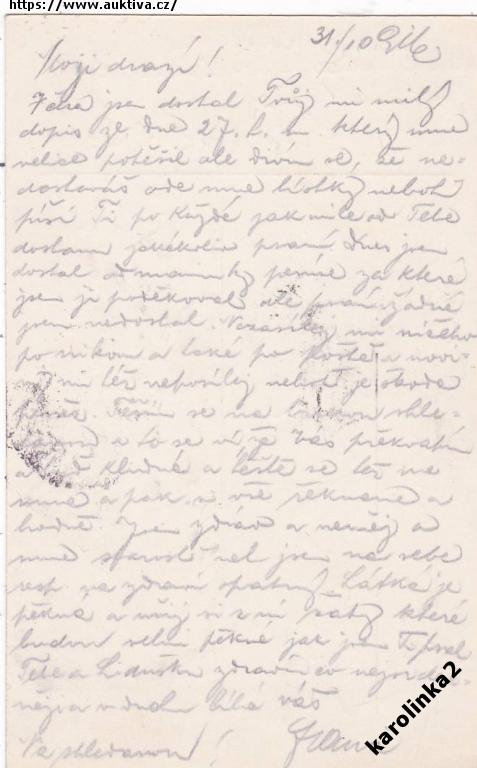 https://www.auktiva.cz/
31/10
Moji drazí!
jsem dostal Tvůj mi milý
dopis ze dne 27. t. m. který mne
velice potěšil ale divím se, že ne-
dostáváš ode mne lístky neboť
píši Ti po každé jak mile od Tebe
dostanu jakékoliv psaní. Dnes jsem
dostal od maminky peníze za které
jsem jí poděkoval, ale psaní žádné
jsem nedostal. mi ničeho
po nikom a také po poště
mi též neposílej neboť je škoda
peněz. Těším se na shle-
danou a to se ví že Vás překvapím
a klidně a těšte se též na
mne a pak si vše řekneme a
hodně. Jsem zdráv a neměj o
mne starost neb jsem na sebe
resp. na zdraví opatrný. Látka je
pěkná a si z ní šaty které
budou velmi pěkné jak jsem Ti psal
Tebe a Lidušku zdravím co nejsrdeč-
něji a v duchu líbá váš
Na shledanou!
karolinka2